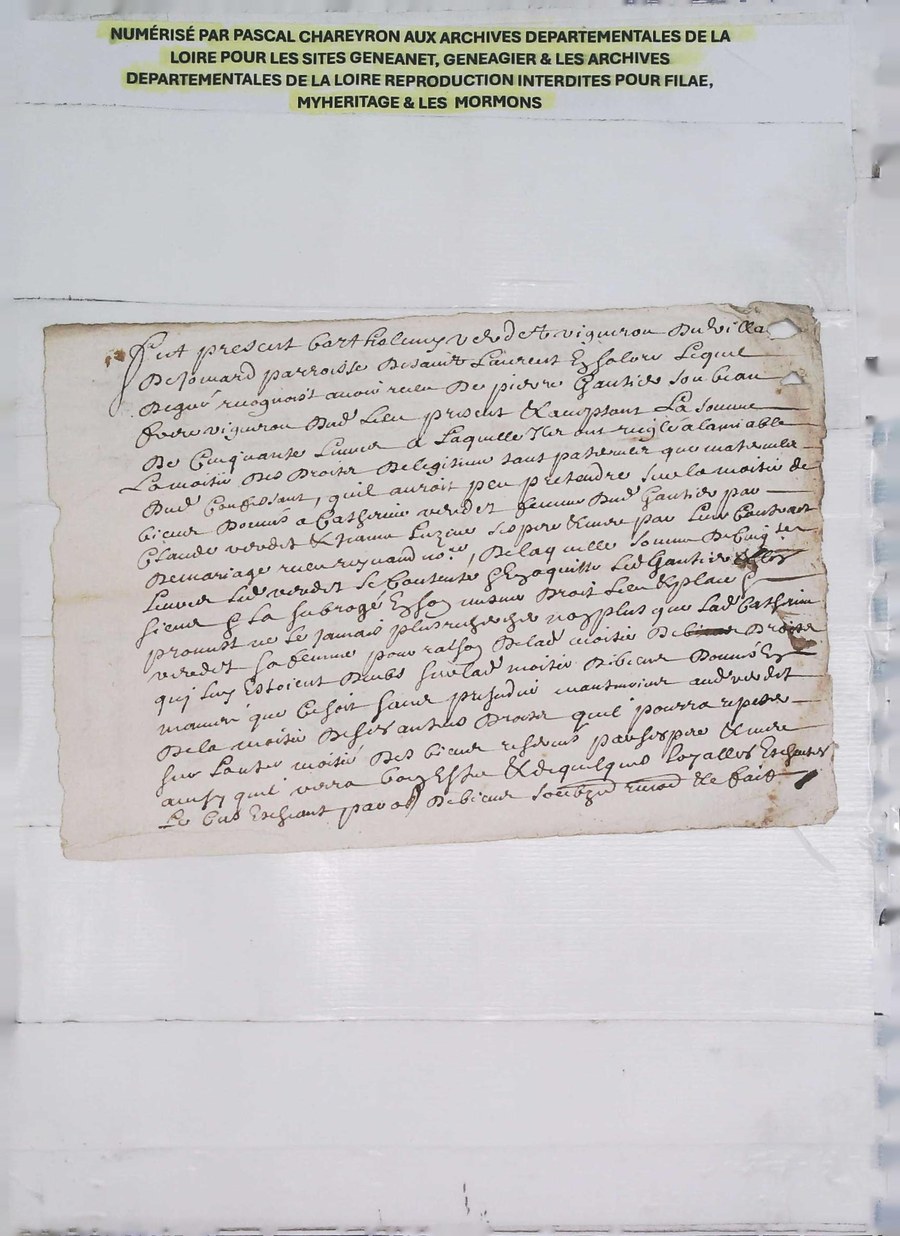 NUMÉRISÉ PAR PASCAL CHAREYRON AUX ARCHIVES DEPARTEMENTALES DE LA
LOIRE POUR LES SITES GENEANET, GENEAGIER & LES ARCHIVES
DEPARTEMENTALES DE LA LOIRE REPRODUCTION INTERDITES POUR FILAE,
MYHERITAGE & LES MORMONS
fut present bartholemy verdet vigneron du villa
parroisse de saint Laurent Lequel
de gré recognoist avoir receu de pierre Gautier son beau
frere vigneron dud lieu present & acceptant La somme
De Cinquante Livres a Laquelle Ils ont reiglé a lamiable
La moitié Des Droits De legitime tant paternel que maternelz
Dud Confessant, quil auroit peu pretendre sur la moitié de
biens Donnés a Catherine verdet femme Dud Gautier par
Claude verdet & ses pere & mere par Leur Contract
De mariage receu , De laquelle somme De Cinqte
Livres Led verdet Se Contente & En quitte Led Gautier
& La subrogé En son mesme Droit Lieu & place
promest ne le jamais plus rechercher non plus que Lad Catherine
verdet sa femme pour raison De lad moitié De Droits
quy Luy Estoient Deubs sur lad moitié De biens Donnés
maniere que Ce soit sans prejudice aud verdet
De la moitié De ses autres Droits quil pourra repeter
sur Lautre moitié Des biens reservés par ses pere & mere
ainsy quil verra bon Estre & de quelques Loyalles
Le tout par De biens & de fait